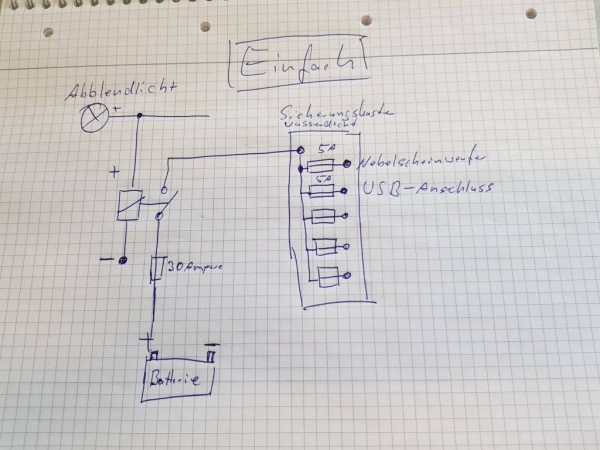 Einfach
Abblendlicht
+
Sicherungskasten
wasserdicht
5A
Nebelscheinwerfer
5A
USB-Anschluss
+
−
30 Ampere
+
−
Batterie